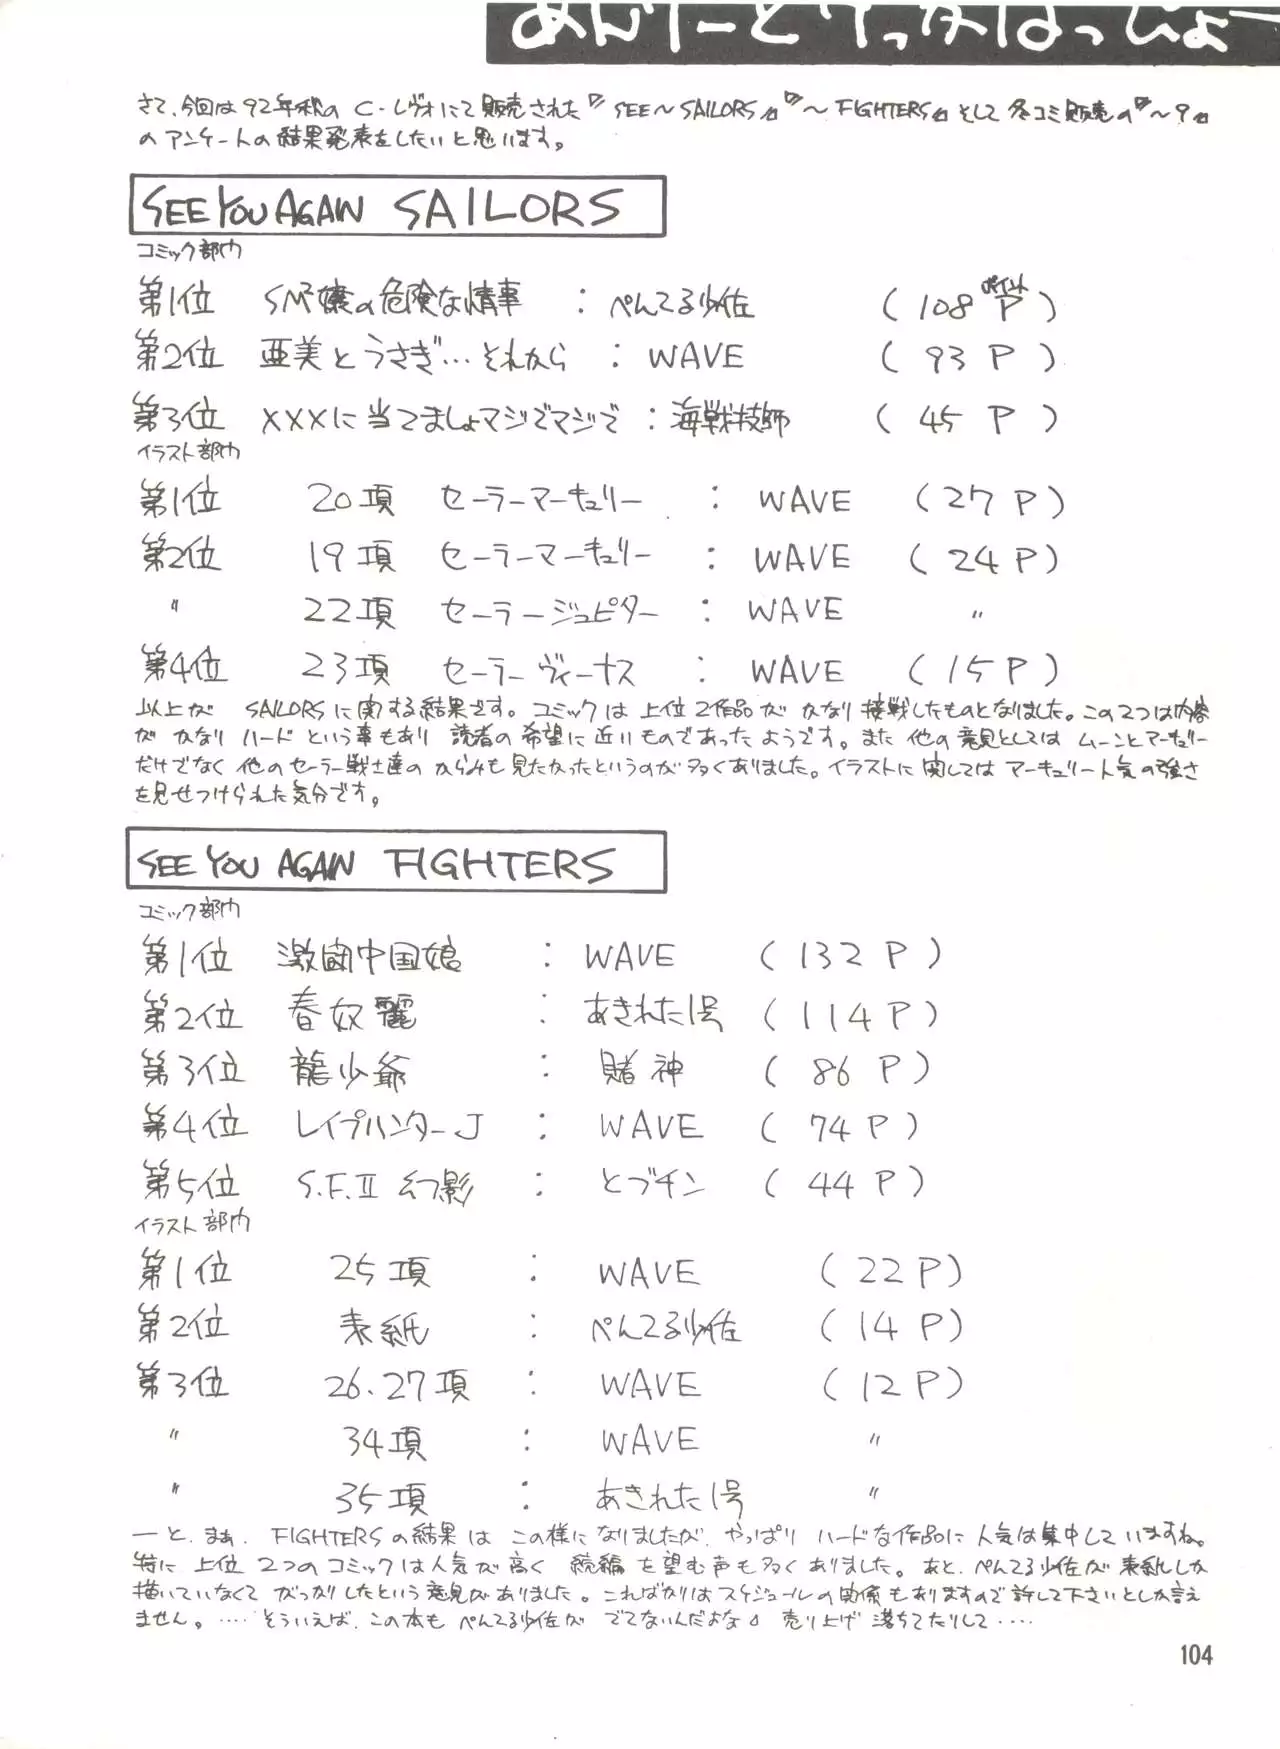 あんけーとけっかはっぴょー
さて、今回は92年秋の C-レヴォにて販売された『SEE～SAILORS』『～FIGHTERS』そして冬コミ販売の『～9』
のアンケートの結果発表をしたいと思います。
SEE YOU AGAIN SAILORS
コミック部門
第1位 SM嬢の危険な情事 : ぺんてる少佐 (108 ポイントP)
第2位 亜美とうさぎ…それから : WAVE (93 P)
第3位 XXXに当てましょマジでマジで : 海戦技師 (45 P)
イラスト部門
第1位 20項 セーラーマーキュリー : WAVE (27 P)
第2位 19項 セーラーマーキュリー : WAVE (24 P)
〃 22項 セーラージュピター : WAVE 〃
第4位 23項 セーラーヴィーナス : WAVE (15 P)
以上が SAILORSに関する結果です。コミックは上位2作品がかなり接戦したものとなりました。この2つは内容
がかなりハードという事もあり 読者の希望に近いものであったようです。また他の意見としてはムーンとマーキュリー
だけでなく他のセーラー戦士達のからみも見たかったというのが多くありました。イラストに関してはマーキュリー人気の強さ
を見せつけられた気分です。
SEE YOU AGAIN FIGHTERS
コミック部門
第1位 激闘中国娘 : WAVE (132 P)
第2位 春奴麗 : あきれた1号 (114 P)
第3位 龍少爺 : 賭神 (86 P)
第4位 レイプハンターJ : WAVE (74 P)
第5位 S.F.Ⅱ 幻影 : とブチン (44 P)
イラスト部門
第1位 25項 : WAVE (22 P)
第2位 表紙 : ぺんてる少佐 (14 P)
第3位 26.27項 : WAVE (12 P)
〃 34項 : WAVE 〃
〃 35項 : あきれた1号 〃
ーと、まぁ、FIGHTERSの結果はこの様になりましたが、やっぱりハードな作品に人気は集中していますね。
特に上位2つのコミックは人気が高く 続編を望む声も多くありました。あと、ぺんてる少佐が表紙しか
描いていなくてがっかりしたという意見がありました。こればかりはスケジュールの関係もありますので許して下さいとしか言え
ません。……そういえば、この本もぺんてる少佐がでてないんだよな 売り上げ落ちてたりして……
104